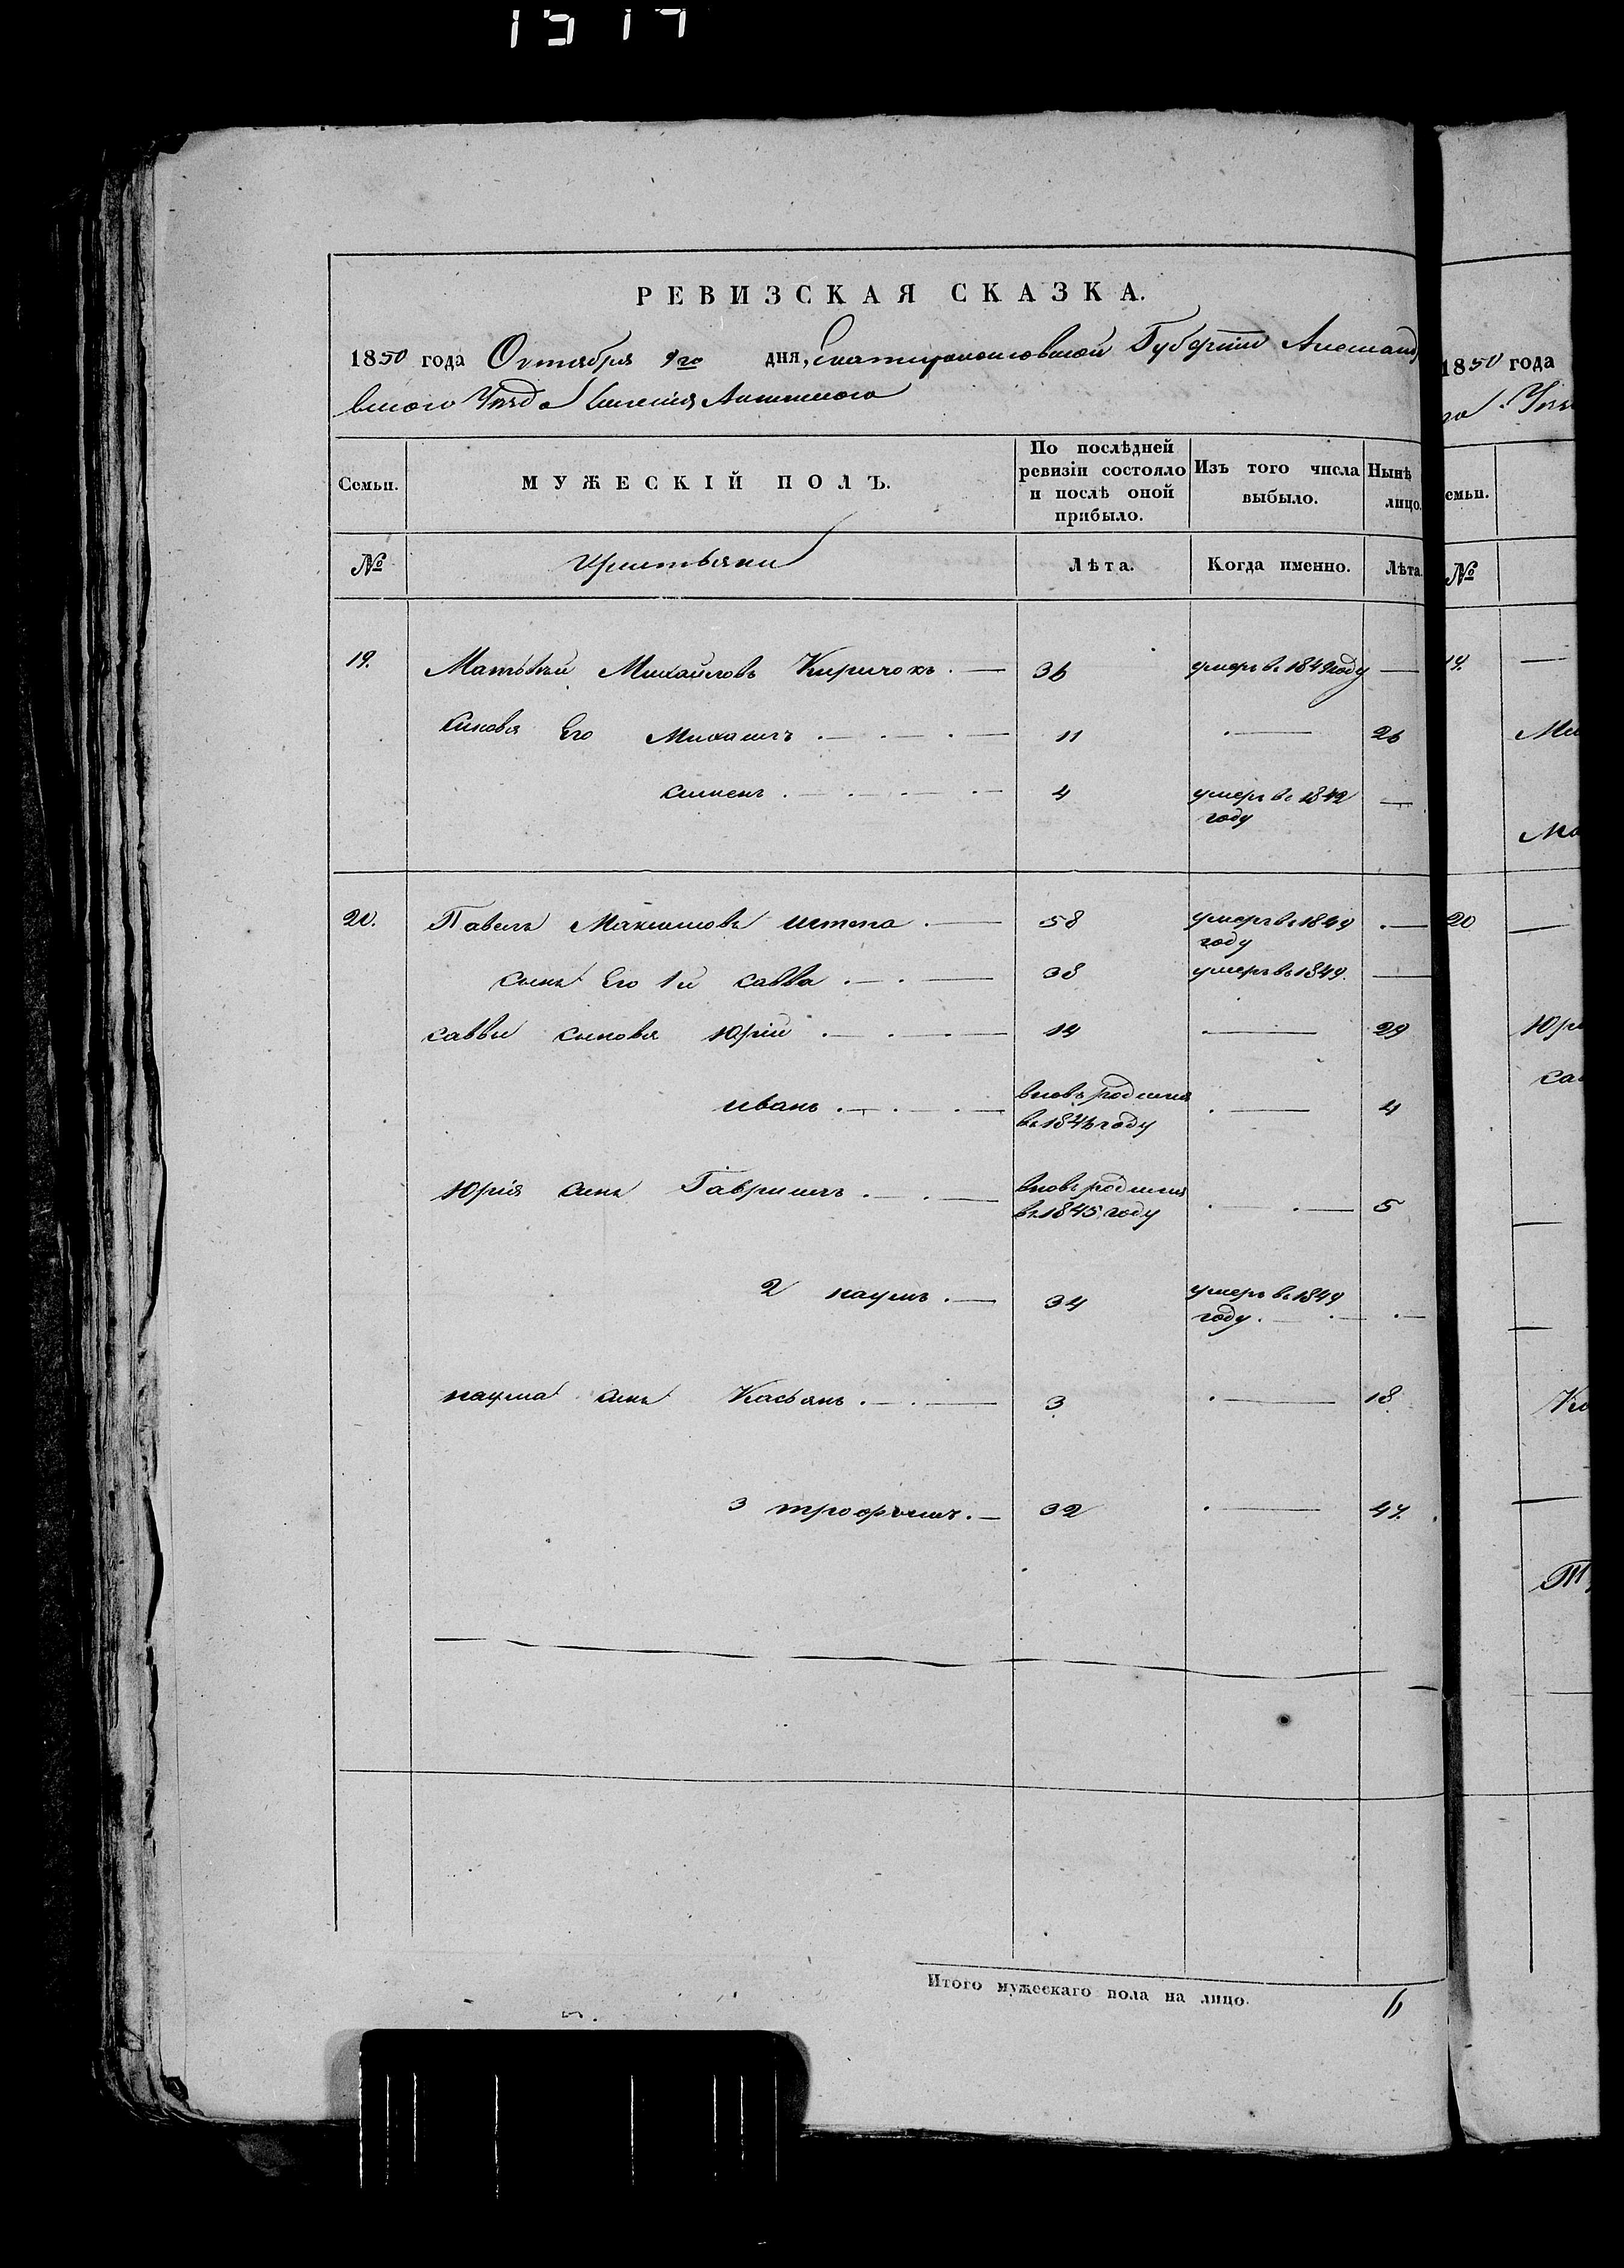 РЕВИЗСКАЯ СКАЗКА.
1850 года Октября 9го дня, Екатеринославской Губернии Александ
вского Уезда
Семьи. МУЖЕСКІЙ ПОЛЪ. По послѣдней ревизіи состояло и послѣ оной прибыло. Изъ того числа выбыло. Нынѣ лицо.
№ Крестьяни Лѣта. Когда именно. Лѣта.
19. Матвѣй Михайловъ Киричокъ . — 36 умеръ в 1849 году —
синовя Его Михаилъ . — . — . — 11 . — 26
сименъ . — . — . — 4 умеръ в 1842 году —
20. Павелъ Максимовъ шпта . — 58 умеръ в 1849 году . —
сынъ Его 1й савва . — . — 38 умеръ в 1849. —
саввы сыновя Юрій . — . — 14 . — 29
иванъ . — . — . — вновь родился в 1846 году . — 4
Юрія синъ Гаврилъ . — . — вновь родился в 1845 году . — . — 5
2 наумъ . — 34 умеръ в 1849 году . — . — . —
наума синъ Касьянъ . — . — 3 . — 18
3 трофимъ . — 32 . — 47.
Итого мужескаго пола на лицо. 6
1850 года
го Уез
емьи.
№
19. —
Ми
Ма
20 —
Юрі
са
Ка